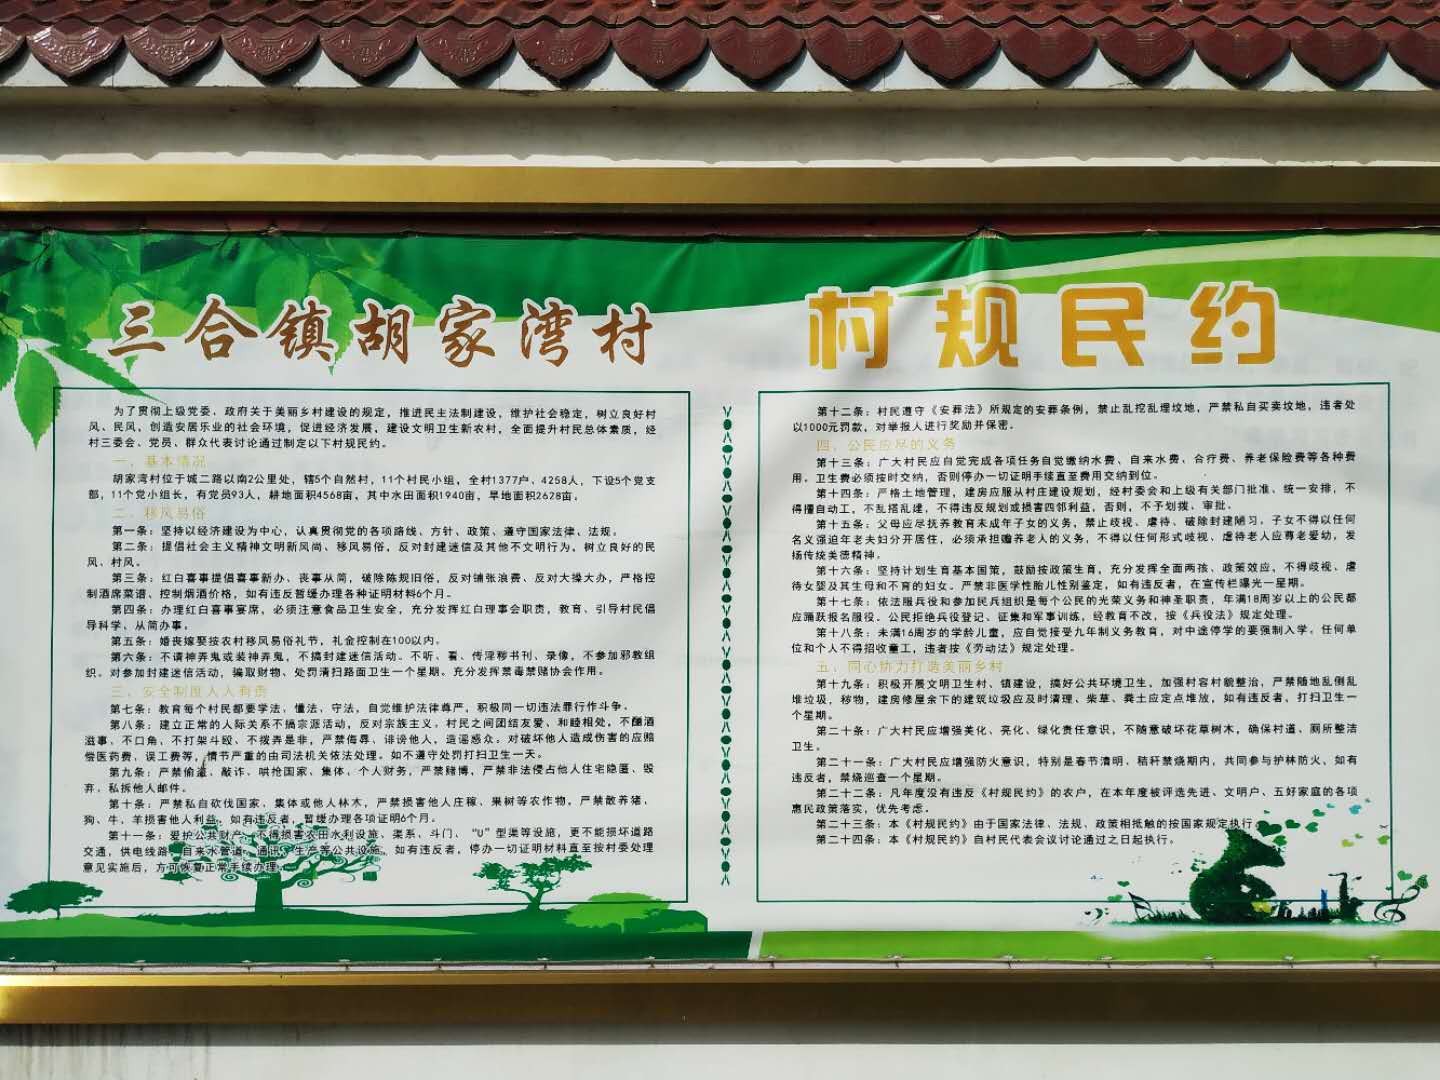 三合镇胡家湾村
村规民约
为了贯彻上级党委、政府关于美丽乡村建设的规定，推进民主法制建设，维护社会稳定，树立良好村
风、民风，创造安居乐业的社会环境，促进经济发展，建设文明卫生新农村，全面提升村民总体素质，经
村三委会、党员、群众代表讨论通过制定以下村规民约。
一、基本情况
胡家湾村位于城二路以南2公里处，辖5个自然村，11个村民小组，全村1377户、4258人，下设5个党支
部，11个党小组长，有党员93人，耕地面积4568亩，其中水田面积1940亩，旱地面积2628亩。
二、移风易俗
第一条：坚持以经济建设为中心，认真贯彻党的各项路线、方针、政策、遵守国家法律、法规。
第二条：提倡社会主义精神文明新风尚、移风易俗，反对封建迷信及其他不文明行为，树立良好的民
风、村风。
第三条：红白喜事提倡喜事新办、丧事从简，破除陈规旧俗，反对铺张浪费、反对大操大办，严格控
制酒席菜谱、控制烟酒价格，如有违反暂缓办理各种证明材料6个月。
第四条：办理红白喜事宴席，必须注意食品卫生安全，充分发挥红白理事会职责，教育、引导村民倡
导科学、从简办事。
第五条：婚丧嫁娶按农村移风易俗礼节，礼金控制在100以内。
第六条：不请神弄鬼或装神弄鬼，不搞封建迷信活动。不听、看、传淫秽书刊、录像，不参加邪教组
织。对参加封建迷信活动，骗取财物、处罚清扫路面卫生一个星期。充分发挥禁毒禁赌协会作用。
三、安全制度人人有责
第七条：教育每个村民都要学法、懂法、守法，自觉维护法律尊严，积极同一切违法罪行作斗争。
第八条：建立正常的人际关系不搞宗派活动，反对宗族主义。村民之间团结友爱、和睦相处，不酗酒
滋事、不口角、不打架斗殴、不拨弄是非，严禁侮辱、诽谤他人、造谣惑众。对破坏他人造成伤害的应赔
偿医药费、误工费等，情节严重的由司法机关依法处理。如不遵守处罚打扫卫生一天。
第九条：严禁偷盗、敲诈、哄抢国家、集体、个人财务，严禁赌博，严禁非法侵占他人住宅隐匿、毁
弃、私拆他人邮件。
第十条：严禁私自砍伐国家、集体或他人林木，严禁损害他人庄稼、果树等农作物，严禁散养猪、
狗、牛、羊损害他人利益，如有违反者，暂缓办理各项证明6个月。
第十一条：爱护公共财产，不得损害农田水利设施、渠系、斗门、“U”型渠等设施，更不能损坏道路
交通，供电线路、自来水管道、通讯、生产等公共设施。如有违反者，停办一切证明材料直至按村委处理
意见实施后，方可恢复正常手续办理。
第十二条：村民遵守《安葬法》所规定的安葬条例，禁止乱挖乱埋坟地，严禁私自买卖坟地，违者处
以1000元罚款，对举报人进行奖励并保密。
四、公民应尽的义务
第十三条：广大村民应自觉完成各项任务自觉缴纳水费、自来水费、合疗费、养老保险费等各种费
用。卫生费必须按时交纳，否则停办一切证明手续直至费用交纳到位。
第十四条：严格土地管理，建房应服从村庄建设规划，经村委会和上级有关部门批准、统一安排，不
得擅自动工，不乱搭乱建，不得违反规划或损害四邻利益，否则，不予划拨、审批。
第十五条：父母应尽抚养教育未成年子女的义务，禁止歧视、虐待、破除封建陋习。子女不得以任何
名义强迫年老夫妇分开居住，必须承担赡养老人的义务，不得以任何形式歧视、虐待老人应尊老爱幼，发
扬传统美德精神。
第十六条：坚持计划生育基本国策，鼓励按政策生育，充分发挥全面两孩、政策效应，不得歧视、虐
待女婴及其生母和不育的妇女。严禁非医学性胎儿性别鉴定，如有违反者，在宣传栏曝光一星期。
第十七条：依法服兵役和参加民兵组织是每个公民的光荣义务和神圣职责，年满18周岁以上的公民都
应踊跃报名服役。公民拒绝兵役登记、征集和军事训练，经教育不改，按《兵役法》规定处理。
第十八条：未满16周岁的学龄儿童，应自觉接受九年制义务教育，对中途停学的要强制入学。任何单
位和个人不得招收童工，违者按《劳动法》规定处理。
五、同心协力打造美丽乡村
第十九条：积极开展文明卫生村、镇建设，搞好公共环境卫生，加强村容村貌整治，严禁随地乱倒乱
堆垃圾，秽物，建房修屋余下的建筑垃圾应及时清理、柴草、粪土应定点堆放，如有违反者，打扫卫生一
个星期。
第二十条：广大村民应增强美化、亮化、绿化责任意识，不随意破坏花草树木，确保村道、厕所整洁
卫生。
第二十一条：广大村民应增强防火意识，特别是春节清明、秸秆禁烧期内，共同参与护林防火、如有
违反者，禁烧巡查一个星期。
第二十二条：凡年度没有违反《村规民约》的农户，在本年度被评选先进、文明户、五好家庭的各项
惠民政策落实，优先考虑。
第二十三条：本《村规民约》由于国家法律、法规、政策相抵触的按国家规定执行。
第二十四条：本《村规民约》自村民代表会议讨论通过之日起执行。